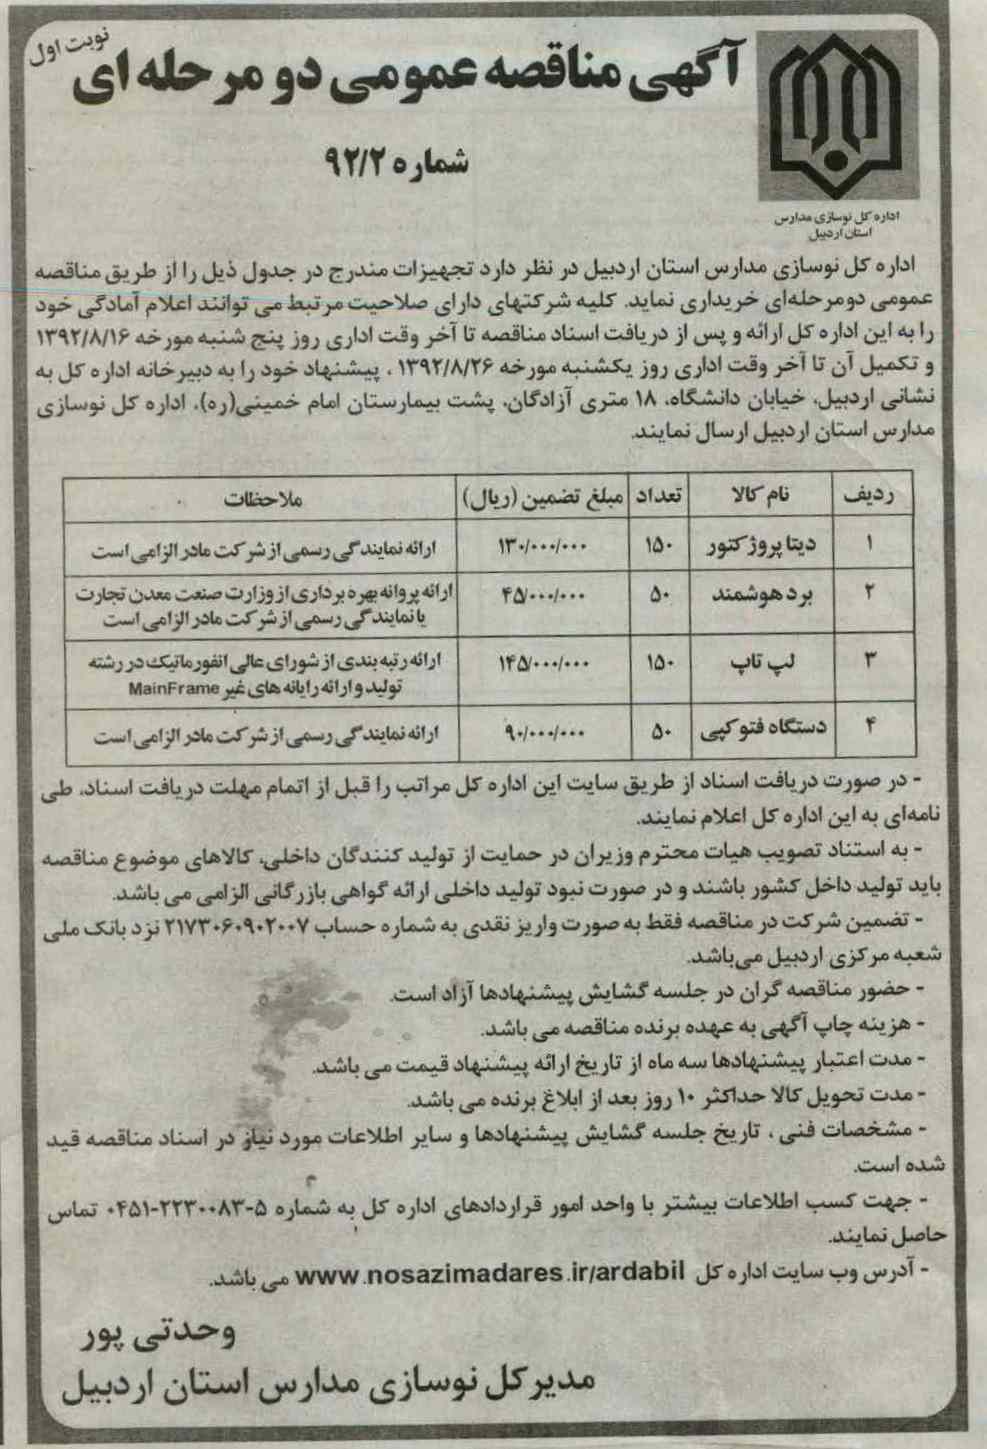 نوبت اول
آگهی مناقصه عمومی دو مرحله ای
شماره ۹۲/۲
اداره کل نوسازی مدارس
استان اردبیل
اداره کل نوسازی مدارس استان اردبیل در نظر دارد تجهیزات مندرج در جدول ذیل را از طریق مناقصه
عمومی دومرحله‌ای خریداری نماید. کلیه شرکتهای دارای صلاحیت مرتبط می توانند اعلام آمادگی خود
را به این اداره کل ارائه و پس از دریافت اسناد مناقصه تا آخر وقت اداری روز پنج شنبه مورخه ۱۳۹۲/۸/۱۶
و تکمیل آن تا آخر وقت اداری روز یکشنبه مورخه ۱۳۹۲/۸/۲۶ ، پیشنهاد خود را به دبیرخانه اداره کل به
نشانی اردبیل، خیابان دانشگاه، ۱۸ متری آزادگان، پشت بیمارستان امام خمینی(ره)، اداره کل نوسازی
مدارس استان اردبیل ارسال نمایند.
ردیف نام کالا تعداد مبلغ تضمین (ریال) ملاحظات
۱ دیتا پروژکتور ۱۵۰ ۱۳۰/۰۰۰/۰۰۰ ارائه نمایندگی رسمی از شرکت مادر الزامی است
۲ برد هوشمند ۵۰ ۴۵/۰۰۰/۰۰۰ ارائه پروانه بهره برداری از وزارت صنعت معدن تجارت
یا نمایندگی رسمی از شرکت مادر الزامی است
۳ لپ تاپ ۱۵۰ ۱۴۵/۰۰۰/۰۰۰ ارائه رتبه بندی از شورای عالی انفورماتیک در رشته
تولید و ارائه رایانه های غیر MainFrame
۴ دستگاه فتوکپی ۵۰ ۹۰/۰۰۰/۰۰۰ ارائه نمایندگی رسمی از شرکت مادر الزامی است
- در صورت دریافت اسناد از طریق سایت این اداره کل مراتب را قبل از اتمام مهلت دریافت اسناد، طی
نامه‌ای به این اداره کل اعلام نمایند.
- به استناد تصویب هیات محترم وزیران در حمایت از تولید کنندگان داخلی، کالاهای موضوع مناقصه
باید تولید داخل کشور باشند و در صورت نبود تولید داخلی ارائه گواهی بازرگانی الزامی می باشد.
- تضمین شرکت در مناقصه فقط به صورت واریز نقدی به شماره حساب ۲۱۷۳۰۶۰۹۰۲۰۰۷ نزد بانک ملی
شعبه مرکزی اردبیل می‌باشد.
- حضور مناقصه گران در جلسه گشایش پیشنهادها آزاد است.
- هزینه چاپ آگهی به عهده برنده مناقصه می باشد.
- مدت اعتبار پیشنهادها سه ماه از تاریخ ارائه پیشنهاد قیمت می باشد.
- مدت تحویل کالا حداکثر ۱۰ روز بعد از ابلاغ برنده می باشد.
- مشخصات فنی ، تاریخ جلسه گشایش پیشنهادها و سایر اطلاعات مورد نیاز در اسناد مناقصه قید
شده است.
- جهت کسب اطلاعات بیشتر با واحد امور قراردادهای اداره کل به شماره ۵-۲۲۳۰۰۸۳-۰۴۵۱ تماس
حاصل نمایند.
- آدرس وب سایت اداره کل www.nosazimadares.ir/ardabil می باشد.
وحدتی پور
مدیرکل نوسازی مدارس استان اردبیل